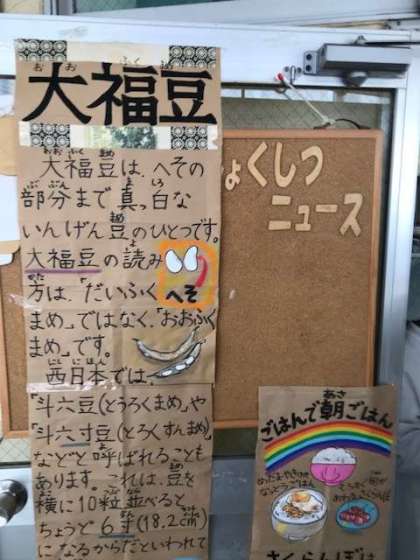 大福豆
大福豆は、へその
部分まで真っ白な
いんげん豆のひとつです。
大福豆の読み
方は「だいふく
まめ」ではなく、「おおふく
まめ」です。
西日本では、
「斗六豆(とうろくまめ)」や
「斗六寸豆(とろくすんまめ)」
などと呼ばれることも
あります。これは、豆を
横に10粒並べると
ちょうど6寸(18.2cm)
になるからだといわれて
へそ
くしつ
ニュース
ごはんで朝ごはん